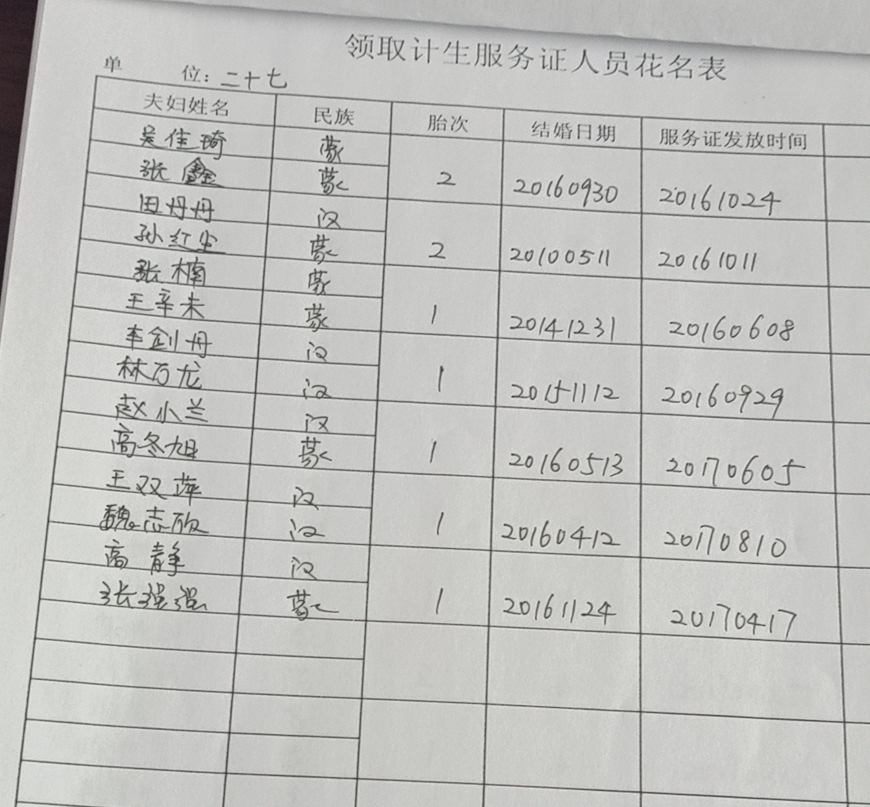 领取计生服务证人员花名表
单 位: 二十七
夫妇姓名 民族 胎次 结婚日期 服务证发放时间
吴佳琦 蒙
张鑫 蒙 2 20160930 20161024
田丹丹 汉
孙红宝 蒙 2 20100511 20161011
张楠 蒙
王辛未 蒙 1 20141231 20160608
李剑丹 汉
林万龙 汉 1 20151112 20160929
赵小兰 汉
高冬旭 蒙 1 20160513 20170605
王双萍 汉
魏志欣 汉 1 20160412 20170810
高静 汉
张强强 蒙 1 20161124 20170417